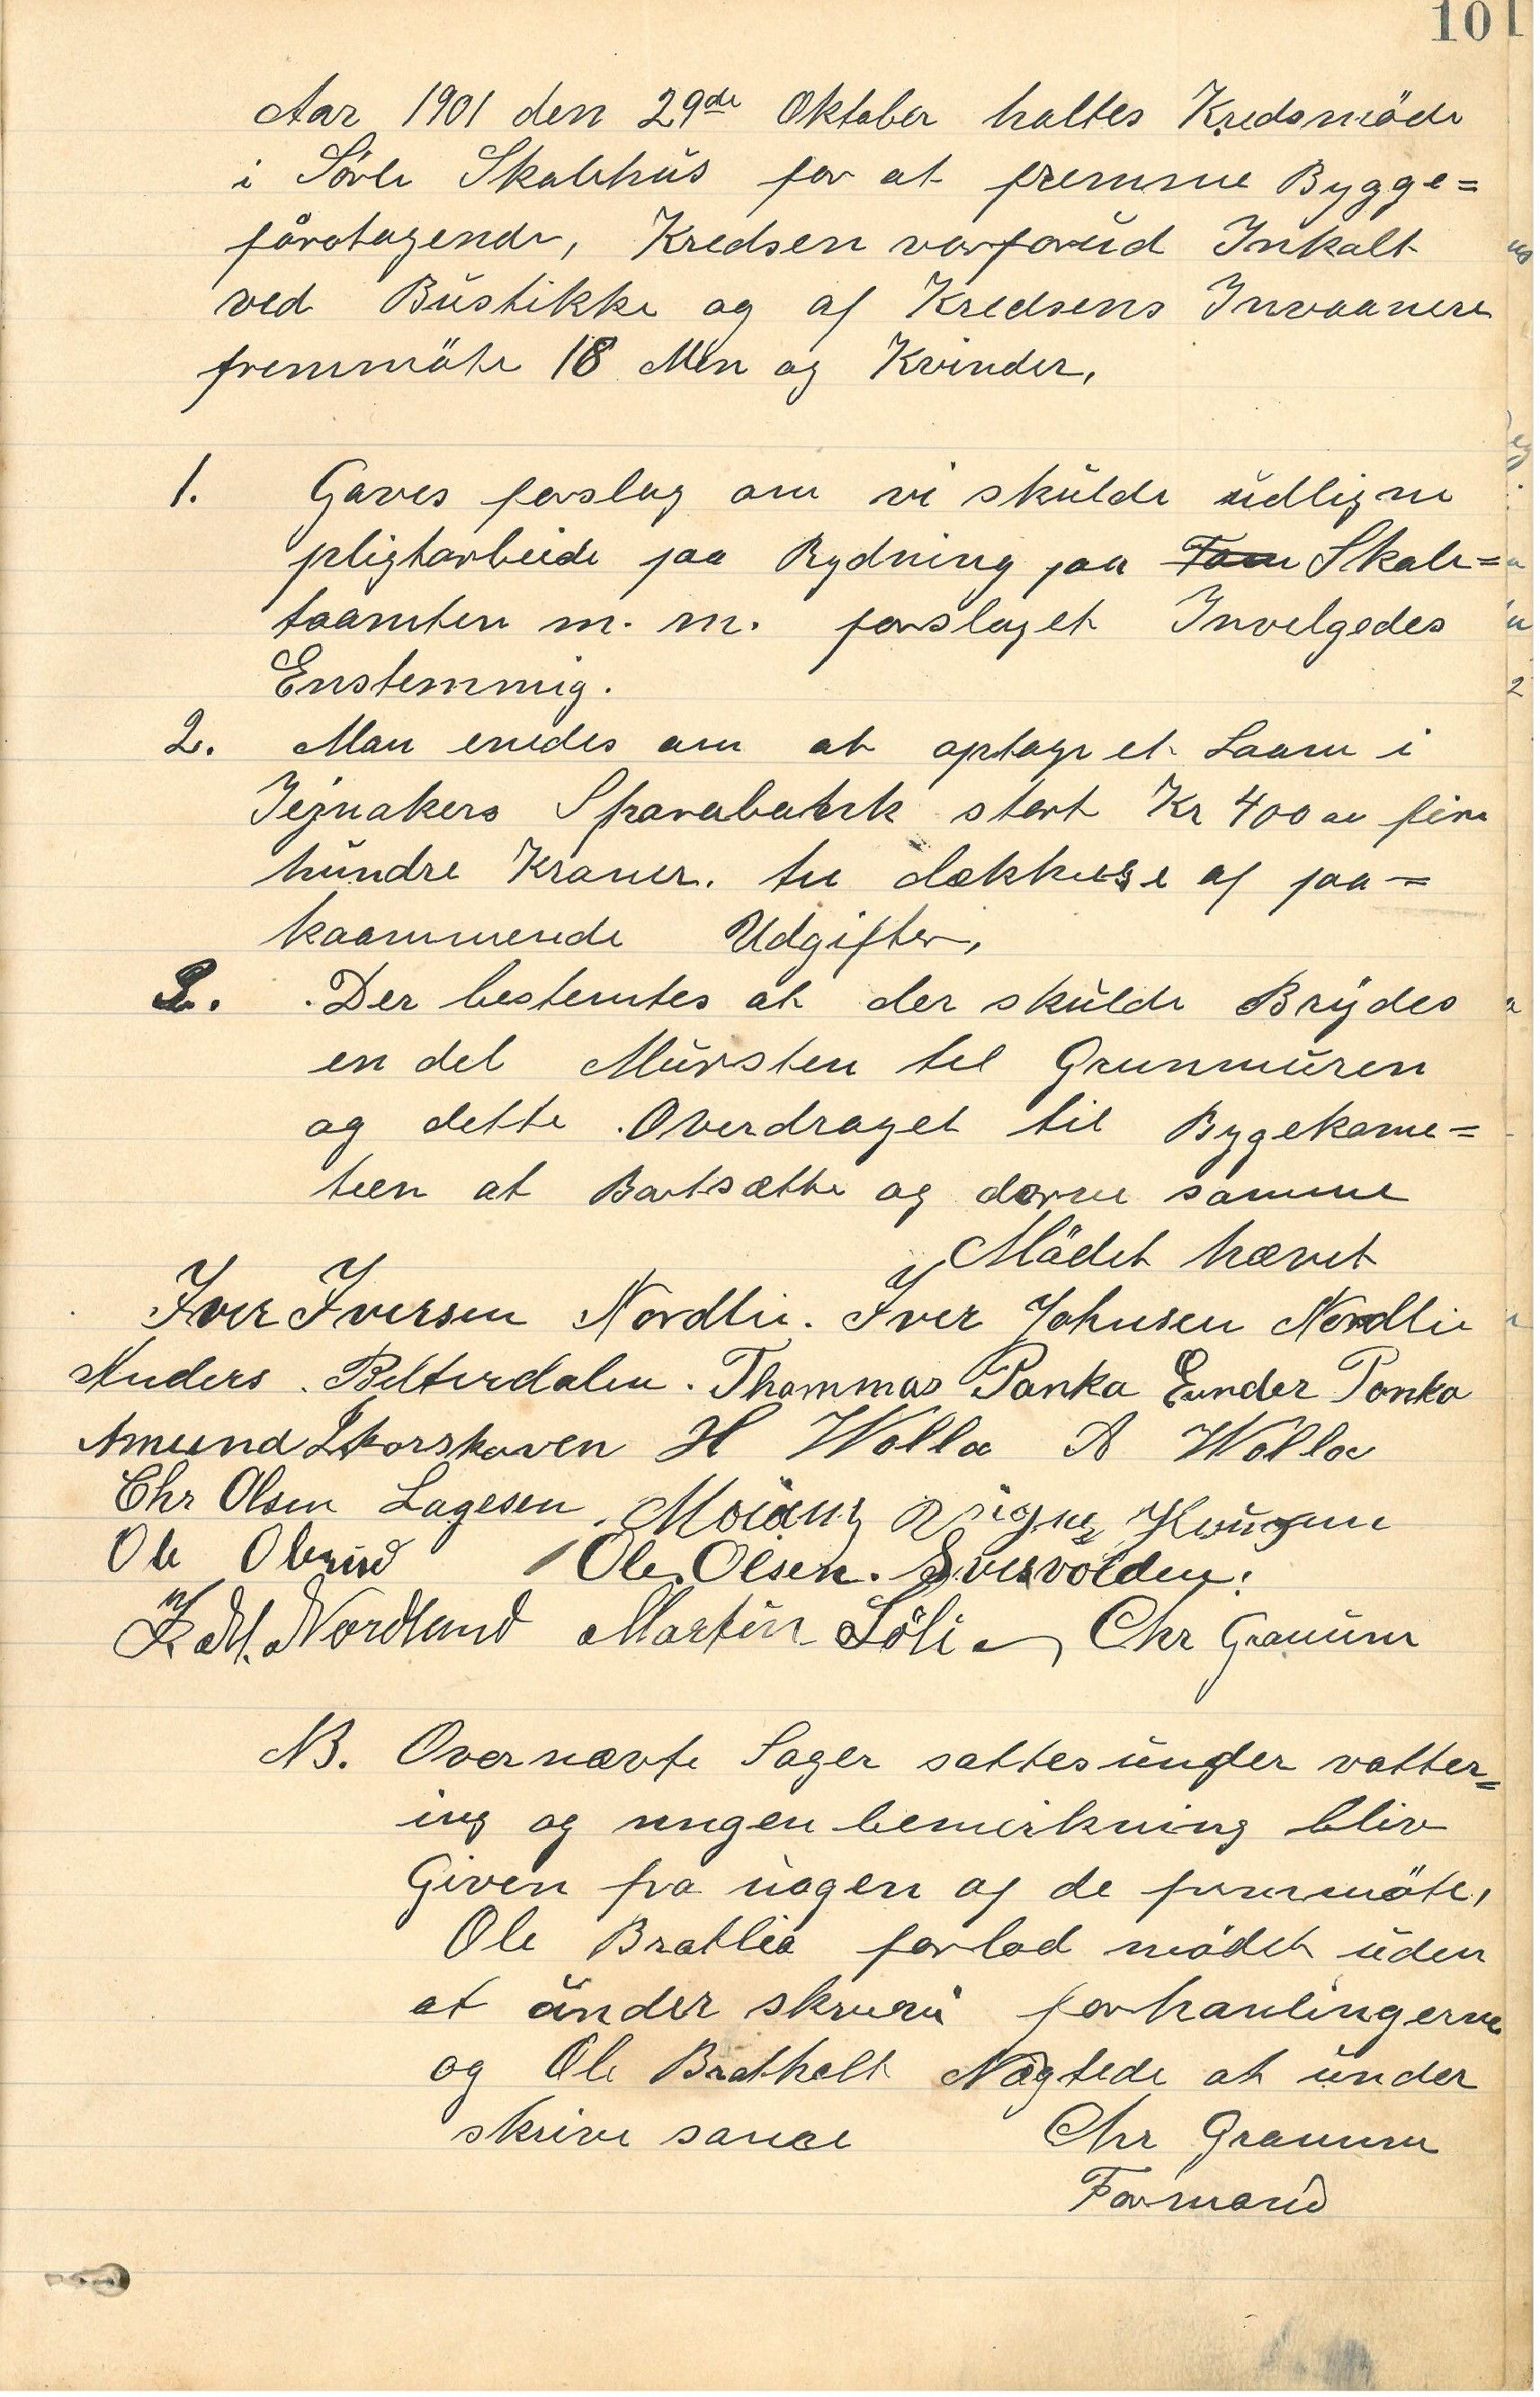 101
Aar 1901 den 29de Oktober holtes Kredsmöde
i Sørli Skolehus for at fremme Bygge=
føretagende, Kredsen var forud Inkalt
ved Bustikke og af Kredsens Invaanere
fremmöte 18 Men og Kvinder,
1. Gaves forslag om vi skulde udligne
pligtarbeide paa Rydning paa Skole=
taamten m. m. forslaget Invelgedes
Enstemmig.
2. Man enedes om at optage et Laan i
Jejnakers Sparebank stort Kr 400 fire
hundre Kroner. til dækkelse af paa=
kaammende Udgifter,
3. Der bestemtes at der skulde Brydes
en del Mursten til Grunmuren
og dette Overdraget til Bygekome=
teen at Bortsætte og dorne samme
Mödet hævet
Iver Iversen Nordlie. Iver Johnsen Nordlie
Anders Belterdalen. Thommas Ponka Ender Ponka
Amund Skorskoven H Wolla A Wolla
Chr Olsen Lagesen
Ole Olerud Ole Olsen.
K. M. Nordlund Martin Söli Chr Granum
NB. Overnævte Sager sattes under votter=
ing og ingen bemerkning blev
Given fra nogen af de fremmöte,
Ole Bratlia forlod mödet uden
at under skrive forhanlingerne
og Ole Bratholt Nægtede at under
skrive same Chr Granum
Formand